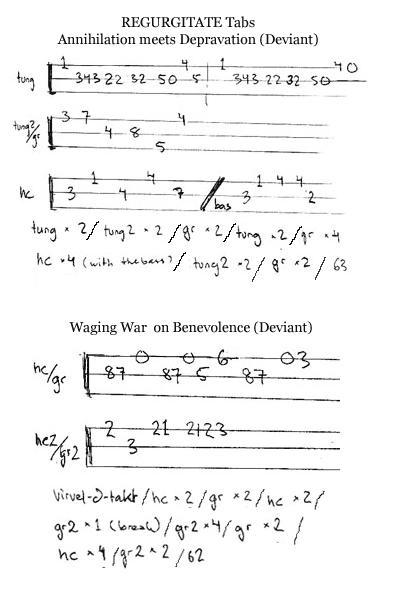 REGURGITATE Tabs
Annihilation meets Depravation (Deviant)
1 4 1 4 0
tung 343 22 32 50 5 343 22 32 50
3 7 4
tung2/gr 4 8
5
1 4 1 4 4
hc 3 4 7 / bas 3 2
tung × 2 / tung2 × 2 / gr × 2 / tung × 2 / gr × 4
hc × 4 (with the bass) / tung2 × 2 / gr × 2 / 63
Waging War on Benevolence (Deviant)
0 0 6 0 3
hc/gr 87 87 5 87
2 21 2123
hc2/gr2 3
virvel-D-takt / hc × 2 / gr × 2 / hc × 2 /
gr2 × 1 (break) / gr2 × 4 / gr × 2 /
hc × 4 / gr2 × 2 / 62